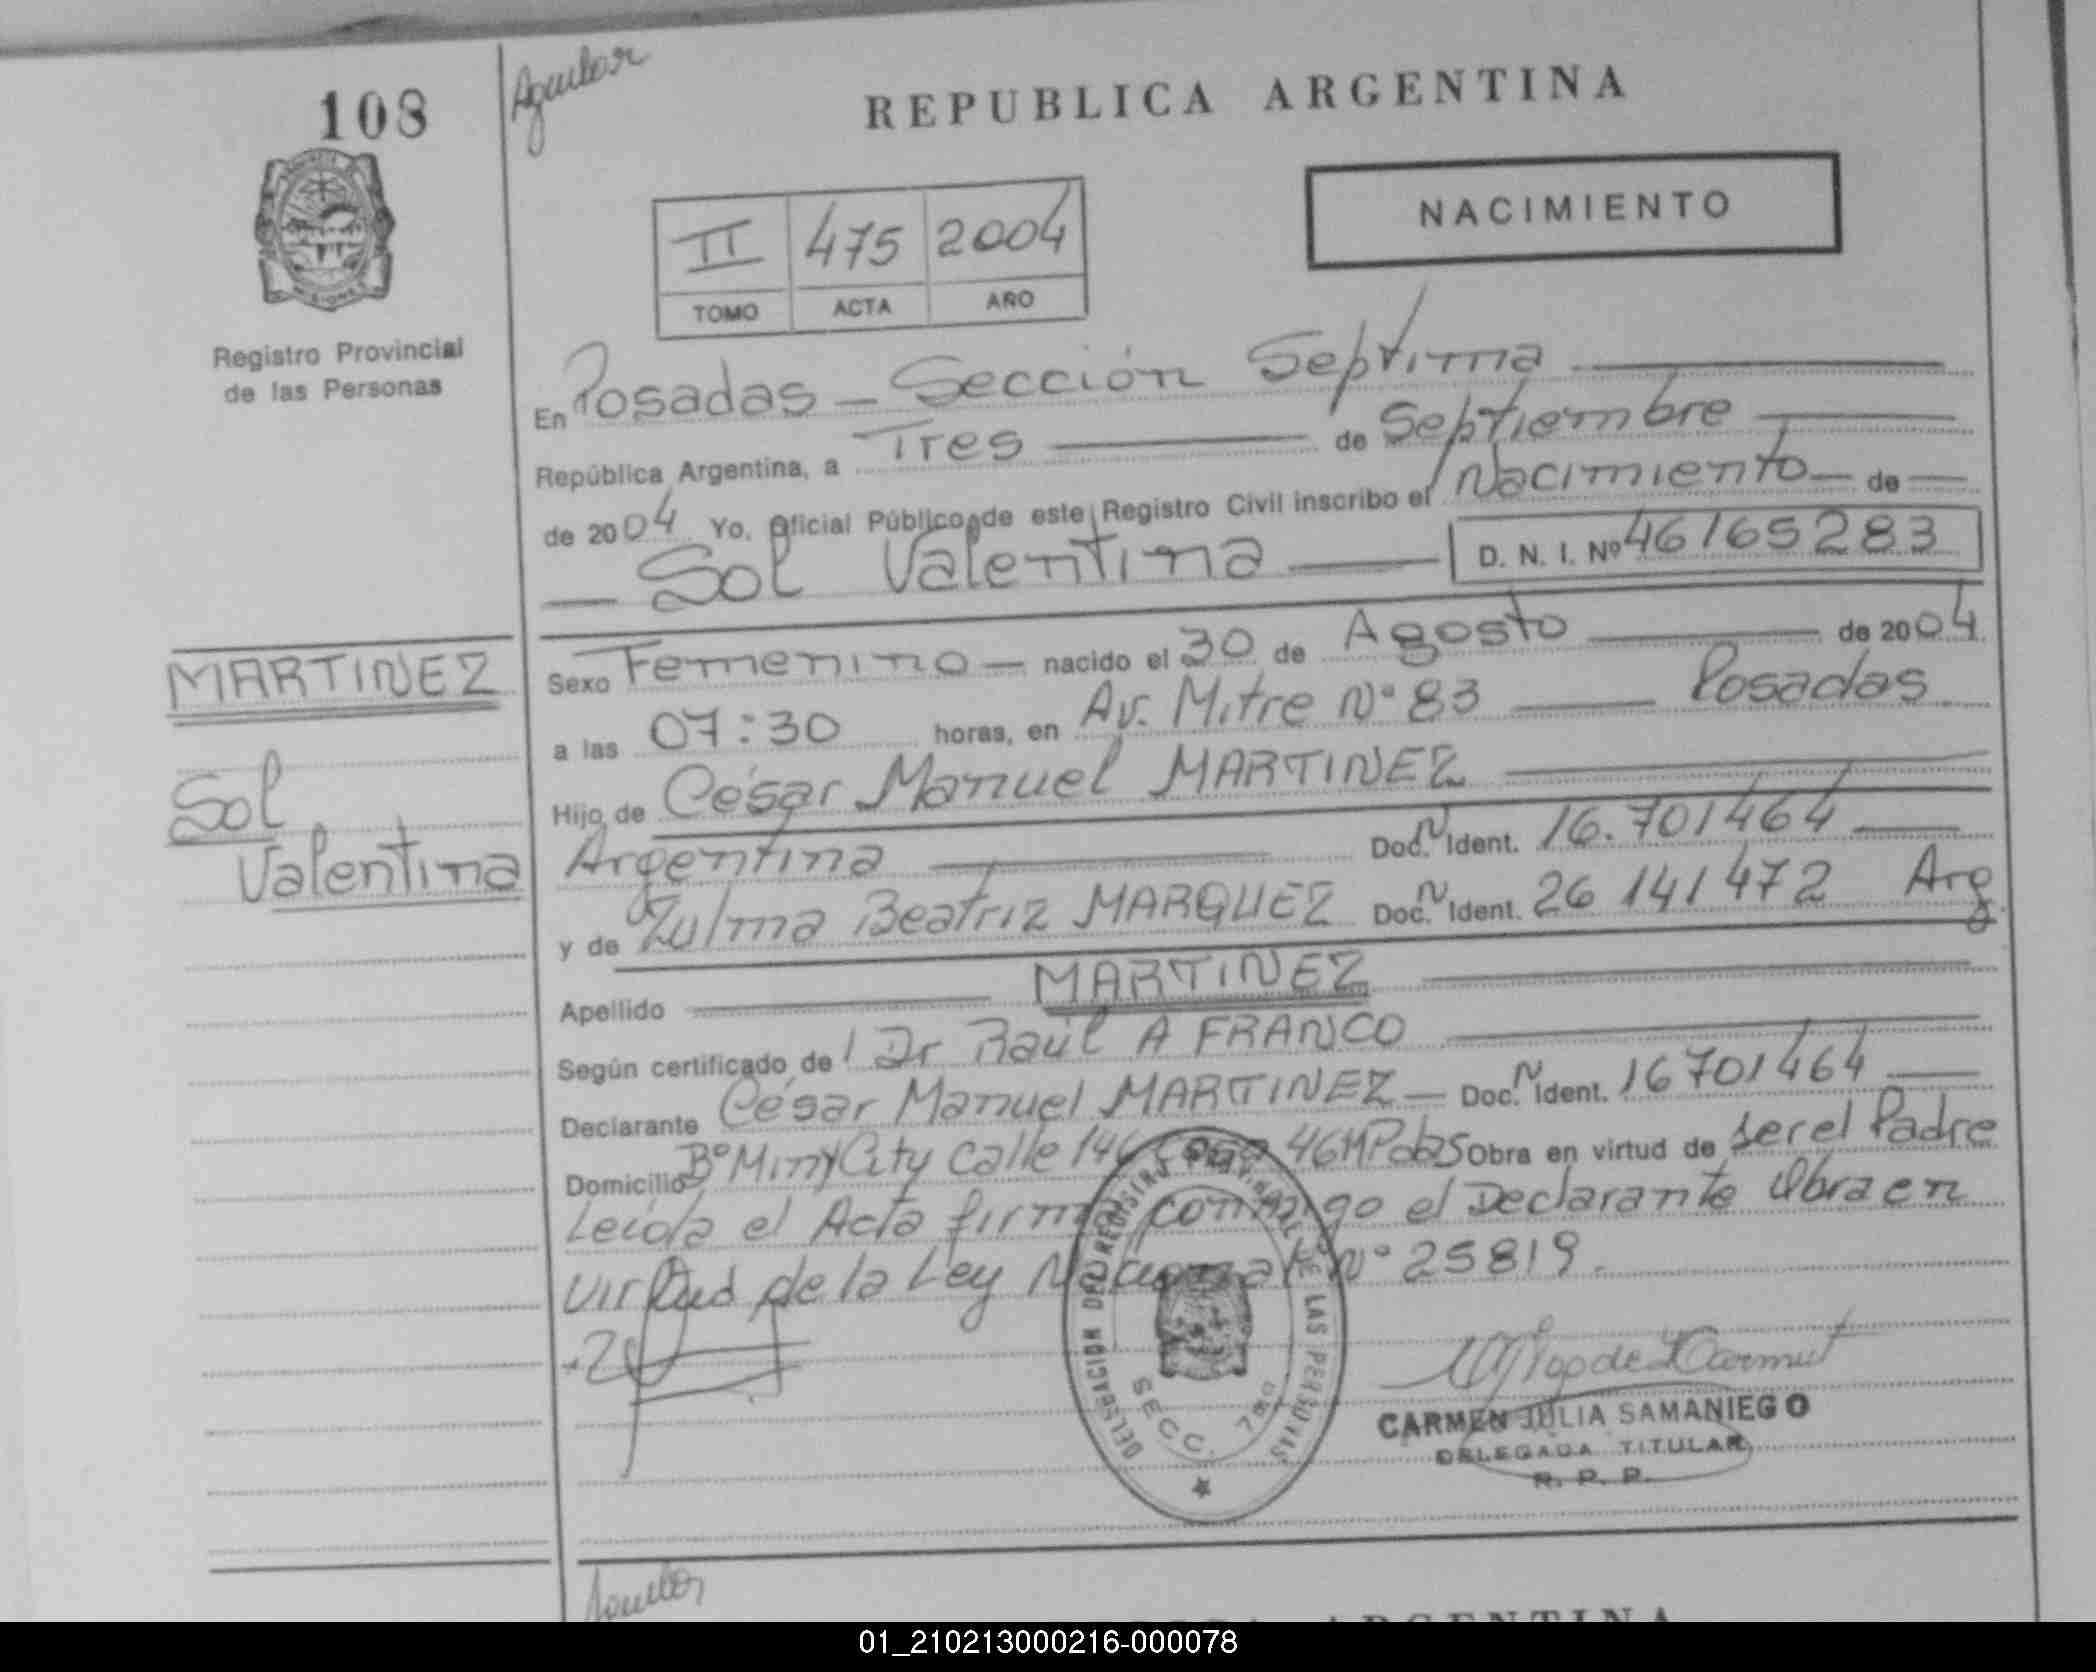 108
Aguilar
REPUBLICA ARGENTINA
NACIMIENTO
II 475 2004
TOMO ACTA AÑO
Registro Provincial
de las Personas
En Posadas - Sección Septima
República Argentina, a Tres de Septiembre
de 2004 Yo, Oficial Público de este Registro Civil inscribo el Nacimiento de
Sol Valentina D. N. I. Nº 46165283
MARTINEZ
Sol
Valentina
Sexo Femenino nacido el 30 de Agosto de 2004
a las 07:30 horas, en Av. Mitre Nº 83 Posadas
Hijo de César Manuel MARTINEZ
Argentina Doc. N Ident. 16.701464
y de Zulma Beatriz MARQUEZ Doc. N Ident. 26 141472 Arg
Apellido MARTINEZ
Según certificado de Dr Raúl A FRANCO
Declarante César Manuel MARTINEZ - Doc. N Ident. 16701464
Domicilio Bº Miny City Calle 146 Casa 46 M Pdas Obra en virtud de ser el Padre
Leida el Acta firma conmigo el Declarante Obra en
virtud de la Ley Nacional Nº 25819.
DELEGACION DEL REGISTRO PROVINCIAL DE LAS PERSONAS
SECC. 7ma
CARMEN JULIA SAMANIEGO
DELEGADA TITULAR
R. P. P.
Aguilar
REPUBLICA ARGENTINA
01_210213000216-000078